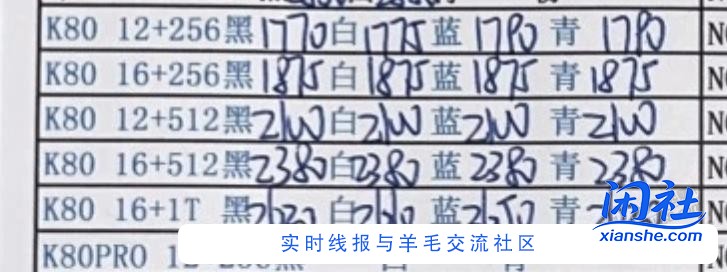 K80 12+256黑1770白1775蓝1790青1790 N
K80 16+256黑1875白1875蓝1875青1875 N
K80 12+512黑2100白2100蓝2100青2100 N
K80 16+512黑2380白2380蓝2380青2380 N
K80 16+1T 黑 白 蓝2650青
K80PRO 12
闲社
xianshe.com
实时线报与羊毛交流社区